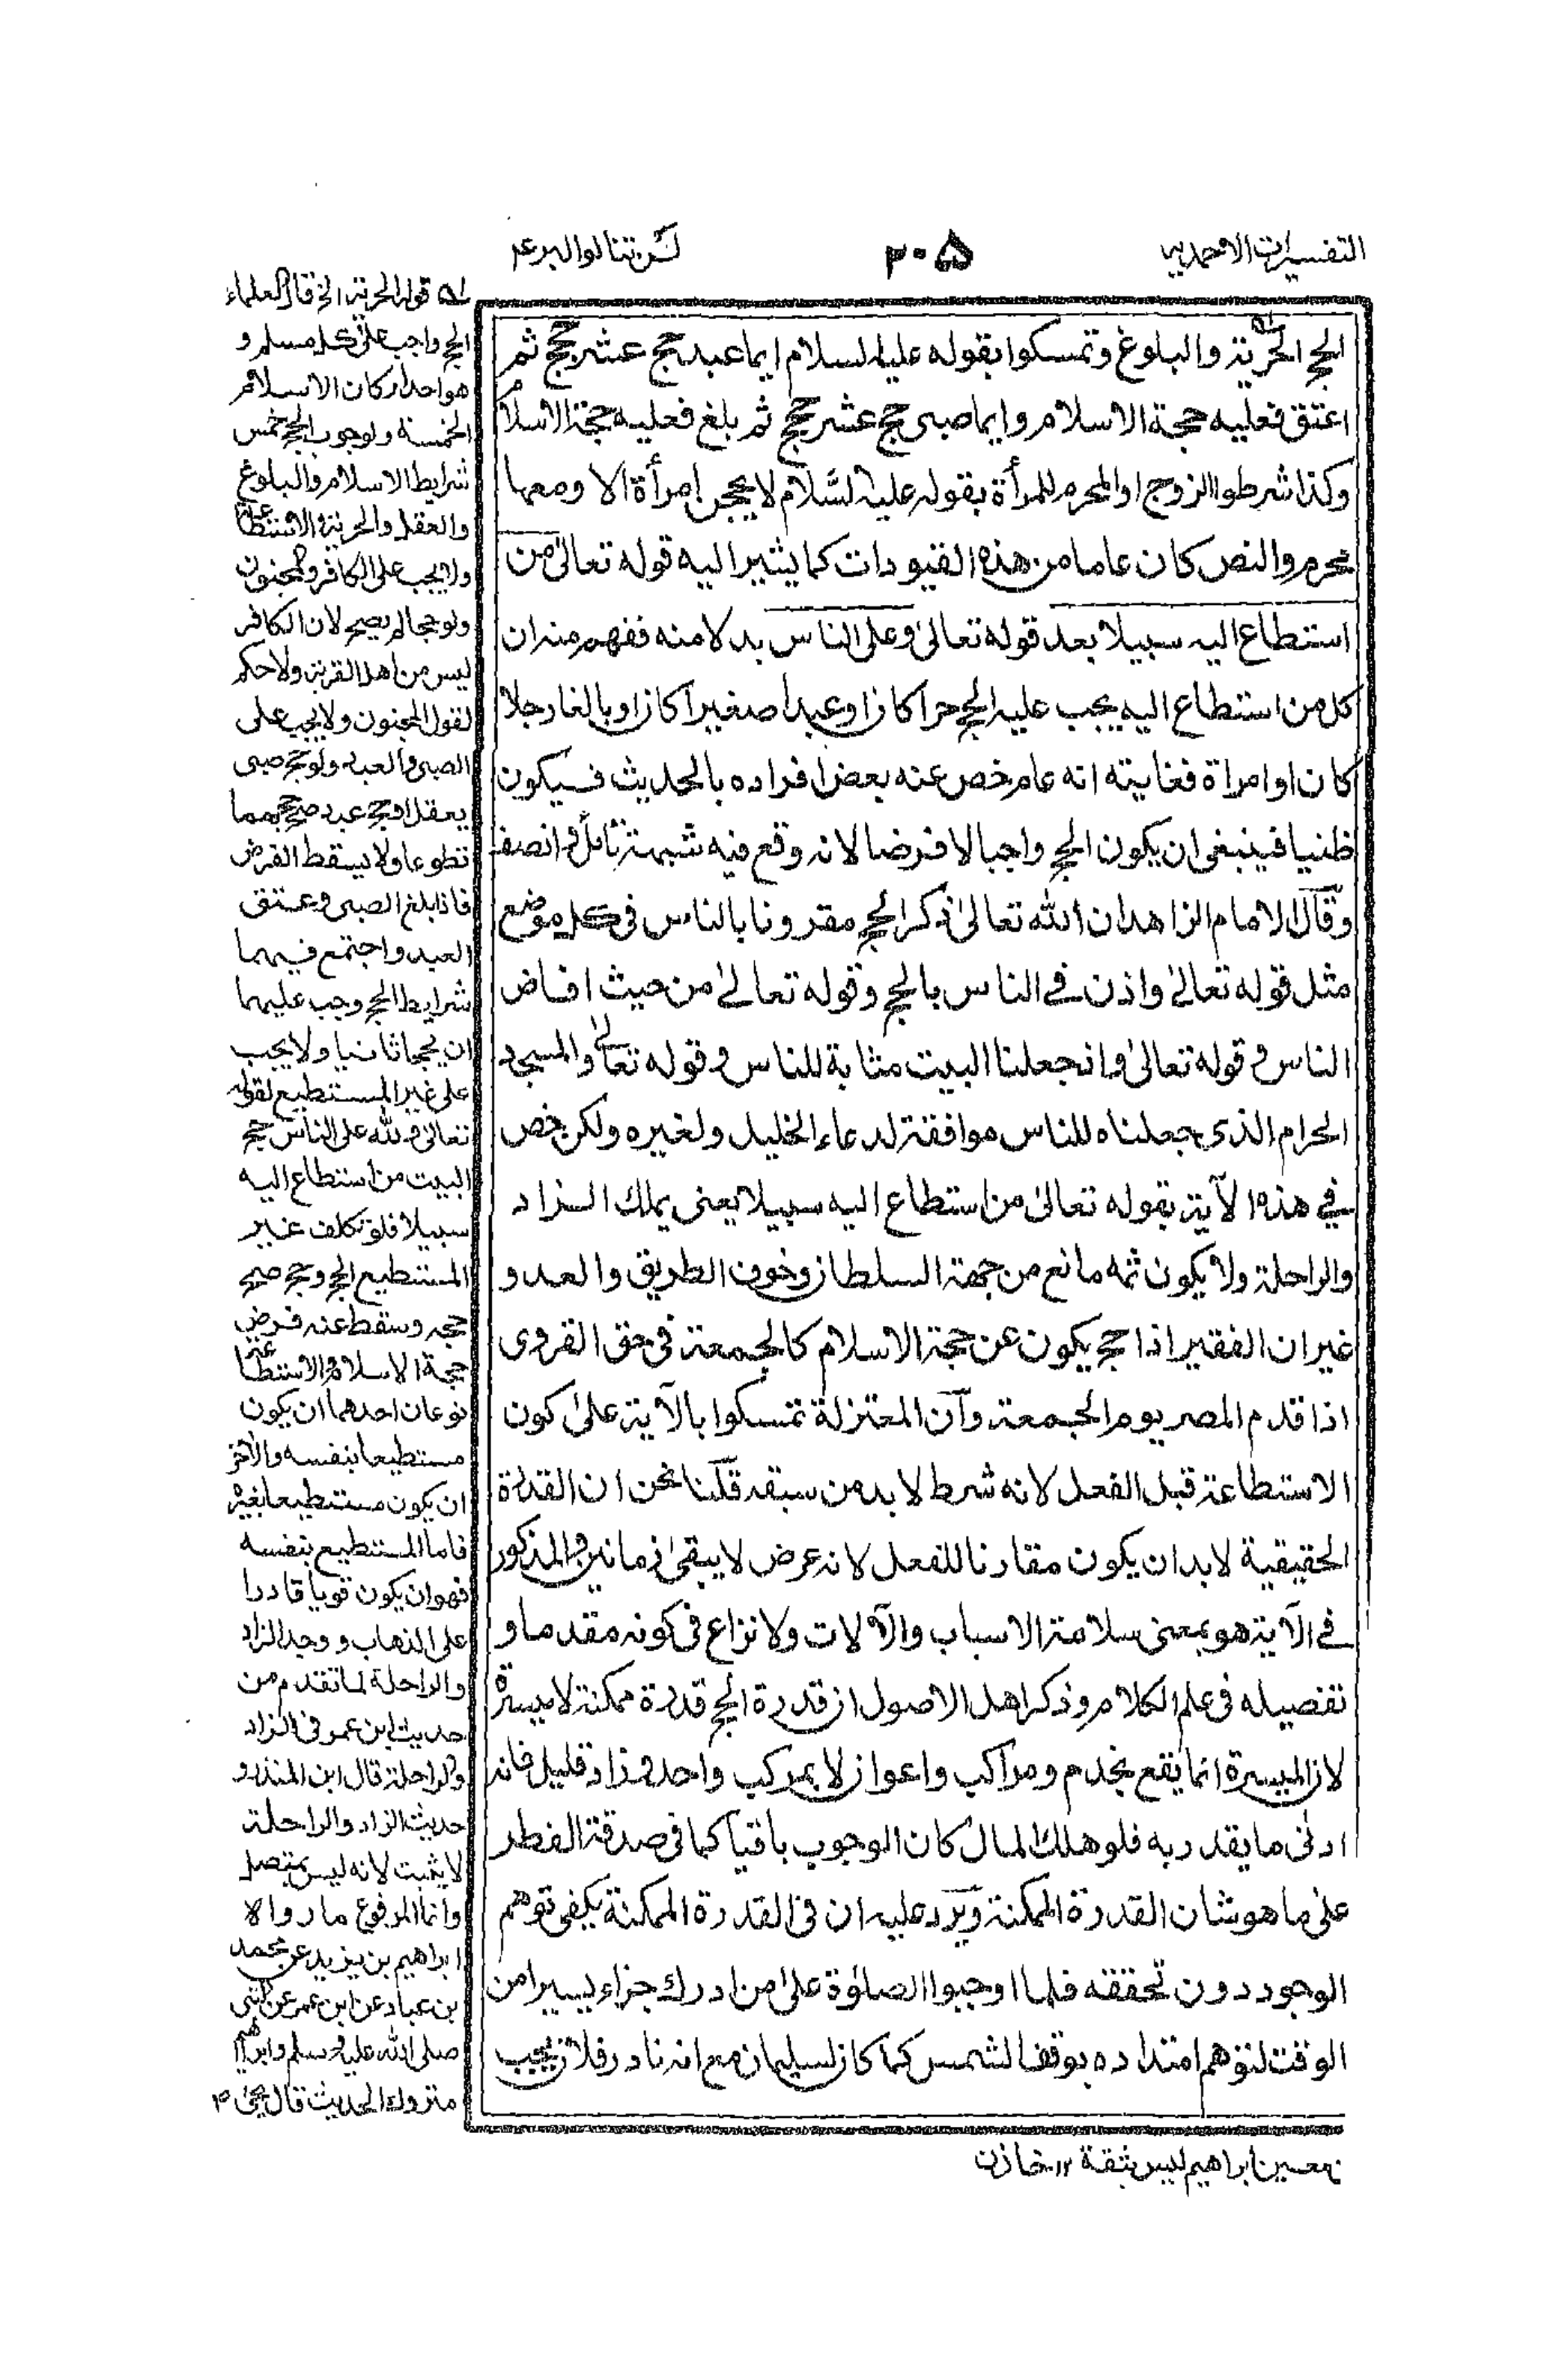 التفسيرات الاحمديه
٢٠٥
لن تنالوا البر ع٤
الحج الحرية والبلوغ وتمسكوا بقوله عليه السلام ايما عبد حج عشر حجج ثم
اعتق فعليه حجة الاسلام وايما صبى حج عشر حجج ثم بلغ فعليه حجة الاسلام
وكذا شرطوا الزوج او المحرم للمرأة بقوله عليه السّلام لا يحجن امرأة الا ومعها
محرم والنص كان عاما من هذه القيودات كما يشير اليه قوله تعالىٰ من
استطاع اليه سبيلا بعد قوله تعالىٰ وعلى الناس بدلا منه ففهم منه ان
كل من استطاع اليه يجب عليه الحج حرا كان او عبدا صغيرا كان او بالغا رجلا
كان او امراة فغايته انه عام خص عنه بعض افراده بالحديث فسيكون
ظنيا فينبغى ان يكون الحج واجبا لا فرضا لانه وقع فيه شبهة تأمل وانصف
وقال الامام الزاهد ان الله تعالىٰ ذكر الحج مقرونا بالناس فى كل موضع
مثل قوله تعالىٰ واذن فى الناس بالحج وقوله تعالىٰ من حيث افاض
الناس وقوله تعالىٰ واذ جعلنا البيت مثابة للناس وقوله تعالىٰ والمسجد
الحرام الذى جعلناه للناس موافقة لدعاء الخليل ولغيره ولكن خص
فى هذه الآية بقوله تعالىٰ من استطاع اليه سبيلا يعنى يملك الزاد
والراحلة ولا يكون ثمه مانع من جهة السلطان وخوف الطريق والعدو
غير ان الفقير اذا حج يكون عن حجة الاسلام كالجمعة فى حق القروى
اذا قدم المصر يوم الجمعة وآن المعتزلة تمسكوا بالآية علىٰ كون
الاستطاعة قبل الفعل لانه شرط لا بد من سبقه قلنا نحن ان القدرة
الحقيقية لا بد ان يكون مقارنا للفعل لانه عرض لا يبقىٰ زمانين والمذكور
فى الآية هو بمعنى سلامة الاسباب والآلات ولا نزاع فى كونه مقدما و
تفصيله فى علم الكلام وذكر اهل الاصول ان قدرة الحج قدرة ممكنة لا ميسرة
لان الميسرة انما يقع بخدم ومراكب واعوان لا بمركب واحد وزاد قليل فانه
ادنىٰ ما يقدر به فلو هلك المال كان الوجوب باقيا كما فى صدقة الفطر
علىٰ ما هو شان القدرة الممكنة ويرد عليه ان فى القدرة الممكنة يكفى توهم
الوجود دون تحققه فلما اوجبوا الصلوٰة علىٰ من ادرك جزاء يسيرا من
الوقت لتوهم امتداده بوقف الشمس كما كان لسليمان مع انه نادر فلان يجب
له قوله الحرية الخ قال العلماء
الحج واجب علىٰ كل مسلم و
هو احد اركان الاسلام
الخمسة ولوجوب الحج خمس
شرايط الاسلام والبلوغ
والعقل والحرية والاستطاعة
ولا يجب على الكافر والمجنون
ولو حجا لم يصح لان الكافر
ليس من اهل القربة ولا حكم
لقول المجنون ولا يجب على
الصبى والعبد ولو حج صبى
يعقل او حج عبد صح حجهما
تطوعا ولا يسقط الفرض
فاذا بلغ الصبى وعتق
العبد واجتمع فيهما
شرايط الحج وجب عليهما
ان يحجا ثانيا ولا يجب
على غير المستطيع لقوله
تعالىٰ ولله على الناس حج
البيت من استطاع اليه
سبيلا فلو تكلف غير
المستطيع الحج وحج صح
حجه وسقط عنه فرض
حجة الاسلام والاستطاعة
نوعان احدهما ان يكون
مستطيعا بنفسه والآخر
ان يكون مستطيعا بغيره
فاما المستطيع بنفسه
فهو ان يكون قويا قادرا
على الذهاب ووجد الزاد
والراحلة لما تقدم من
حديث ابن عمر فى الزاد
والراحلة قال ابن المنذر و
حديث الزاد والراحلة
لا يثبت لانه ليس بمتصل
وانما المرفوع ما رواه
ابراهيم بن يزيد عن محمد
بن عباد عن ابن عمر عن النبى
صلى الله عليه وسلم وابراهيم
متروك الحديث قال يحيىٰ
بن معين ابراهيم ليس بثقة ١٢ خازن